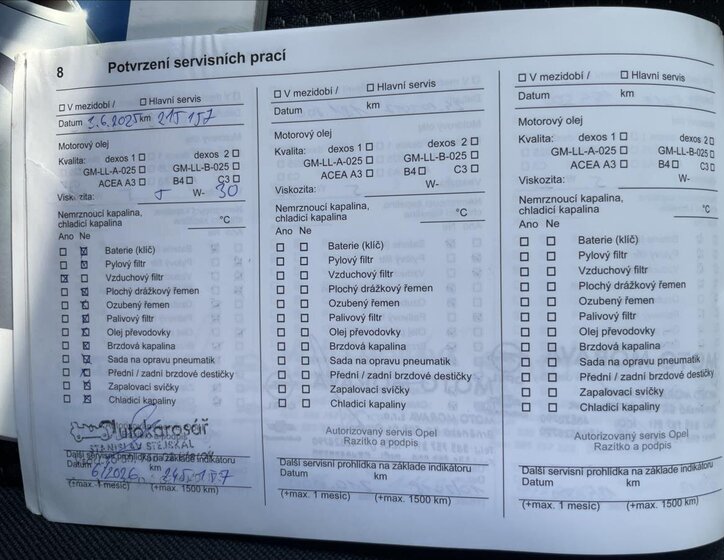 8 Potvrzení servisních prací
☐ V mezidobí / ☐ Hlavní servis
Datum 3.6.2025 km 215157
Motorový olej
Kvalita: dexos 1 ☐ dexos 2 ☐
GM-LL-A-025 ☐ GM-LL-B-025 ☐
ACEA A3 ☐ B4 ☐ C3 ☐
Viskozita: 5 W- 30
Nemrznoucí kapalina,
chladicí kapalina °C
Ano Ne
☐ ☒ Baterie (klíč)
☐ ☒ Pylový filtr
☒ ☐ Vzduchový filtr
☐ ☒ Plochý drážkový řemen
☐ ☒ Ozubený řemen
☐ ☒ Palivový filtr
☐ ☒ Olej převodovky
☐ ☒ Brzdová kapalina
☐ ☒ Sada na opravu pneumatik
☐ ☒ Přední / zadní brzdové destičky
☐ ☒ Zapalovací svíčky
☐ ☒ Chladicí kapaliny
Autokarosář
STANISLAV STEJSKAL
Další servisní prohlídka na základě indikátoru
Datum km
6/2026 245157
(+max. 1 měsíc) (+max. 1500 km)
☐ V mezidobí / ☐ Hlavní servis
Datum km
Motorový olej
Kvalita: dexos 1 ☐ dexos 2 ☐
GM-LL-A-025 ☐ GM-LL-B-025 ☐
ACEA A3 ☐ B4 ☐ C3 ☐
Viskozita: W-
Nemrznoucí kapalina,
chladicí kapalina °C
Ano Ne
☐ ☐ Baterie (klíč)
☐ ☐ Pylový filtr
☐ ☐ Vzduchový filtr
☐ ☐ Plochý drážkový řemen
☐ ☐ Ozubený řemen
☐ ☐ Palivový filtr
☐ ☐ Olej převodovky
☐ ☐ Brzdová kapalina
☐ ☐ Sada na opravu pneumatik
☐ ☐ Přední / zadní brzdové destičky
☐ ☐ Zapalovací svíčky
☐ ☐ Chladicí kapaliny
Autorizovaný servis Opel
Razítko a podpis
Další servisní prohlídka na základě indikátoru
Datum km
(+max. 1 měsíc) (+max. 1500 km)
☐ V mezidobí / ☐ Hlavní servis
Datum km
Motorový olej
Kvalita: dexos 1 ☐ dexos 2 ☐
GM-LL-A-025 ☐ GM-LL-B-025 ☐
ACEA A3 ☐ B4 ☐ C3 ☐
Viskozita: W-
Nemrznoucí kapalina,
chladicí kapalina °C
Ano Ne
☐ ☐ Baterie (klíč)
☐ ☐ Pylový filtr
☐ ☐ Vzduchový filtr
☐ ☐ Plochý drážkový řemen
☐ ☐ Ozubený řemen
☐ ☐ Palivový filtr
☐ ☐ Olej převodovky
☐ ☐ Brzdová kapalina
☐ ☐ Sada na opravu pneumatik
☐ ☐ Přední / zadní brzdové destičky
☐ ☐ Zapalovací svíčky
☐ ☐ Chladicí kapaliny
Autorizovaný servis Opel
Razítko a podpis
Další servisní prohlídka na základě indikátoru
Datum km
(+max. 1 měsíc) (+max. 1500 km)